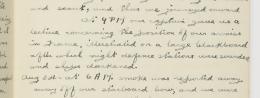 and sent, and thus we journeyed onward
At 9 P.M. our captain gave us a
lecture concerning the position of our armies
in France, illustrated on a large blackboard
after which night defence stations were sounded
and ships darkened.
Aug 30th - at 6 A.M. smoke was reported away
away off our starboard bow, and we were